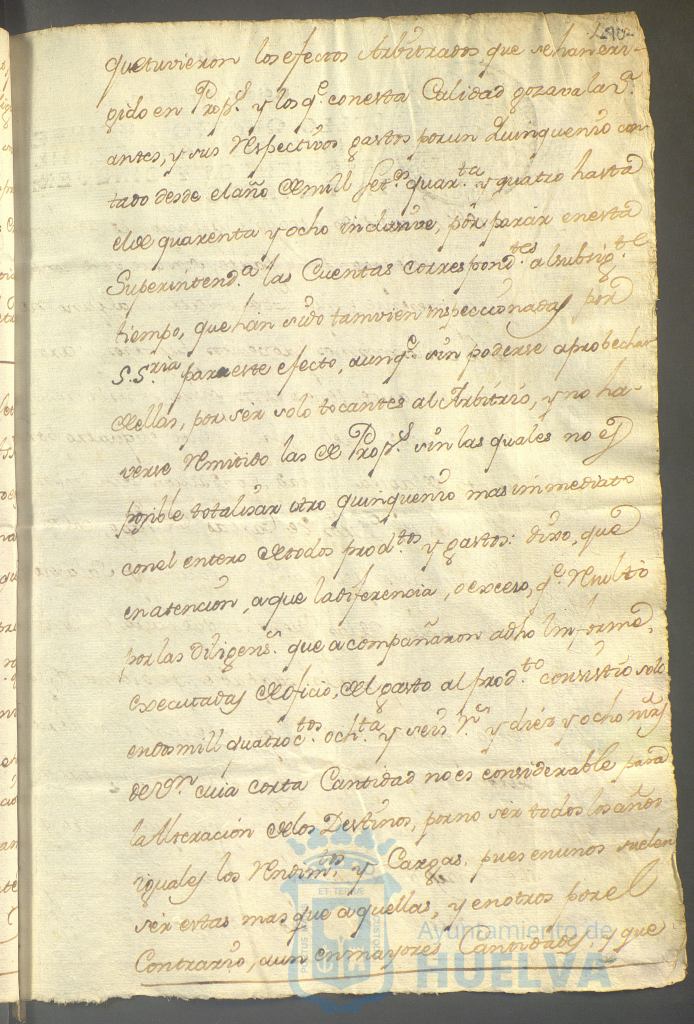 que tuvieron los efectos Arbitrados que se han eri-
gido en Prop.s y los q.e con esta Calidad gozava la V.a
antes, y sus respectivos gastos por un Quinquenio con-
tado desde el año de mill Set.s quar.ta y quatro hasta
el de quarenta y ocho inclusive, por parar en esta
Superintend.a las Cuentas correspond.tes al subsig.te
tiempo, que han sido tamvien inspeccionadas por
S.S.ria para este efecto, aunq.e sin poderse aprobechar
de ellas, por ser solo tocantes al Arbitrio, y no ha-
verse remitido las de Prop.s sin las quales no es
posible totalisar otro quinquenio mas immediato
con el entero de todos prod.tos y gastos: dixo, que
en atencion, a que la diferencia, o exceso, q.e resultó
por las Diligens.s que acompañaron a dho Informe,
executadas de oficio, del gasto al prod.to consistió solo
en dos mill quatroc.tos och.ta y seis r.s y diez y ocho mrs
de V.n cuia corta Cantidad no es considerable para
la Alteración de los Destinos, por no ser todos los años
iguales los rendim.tos y Cargas, pues en unos suelen
ser estas mas que aquellas, y en otros por el
Contrario, aun en mayores Cantidades, y que
Ayuntamiento de
HUELVA